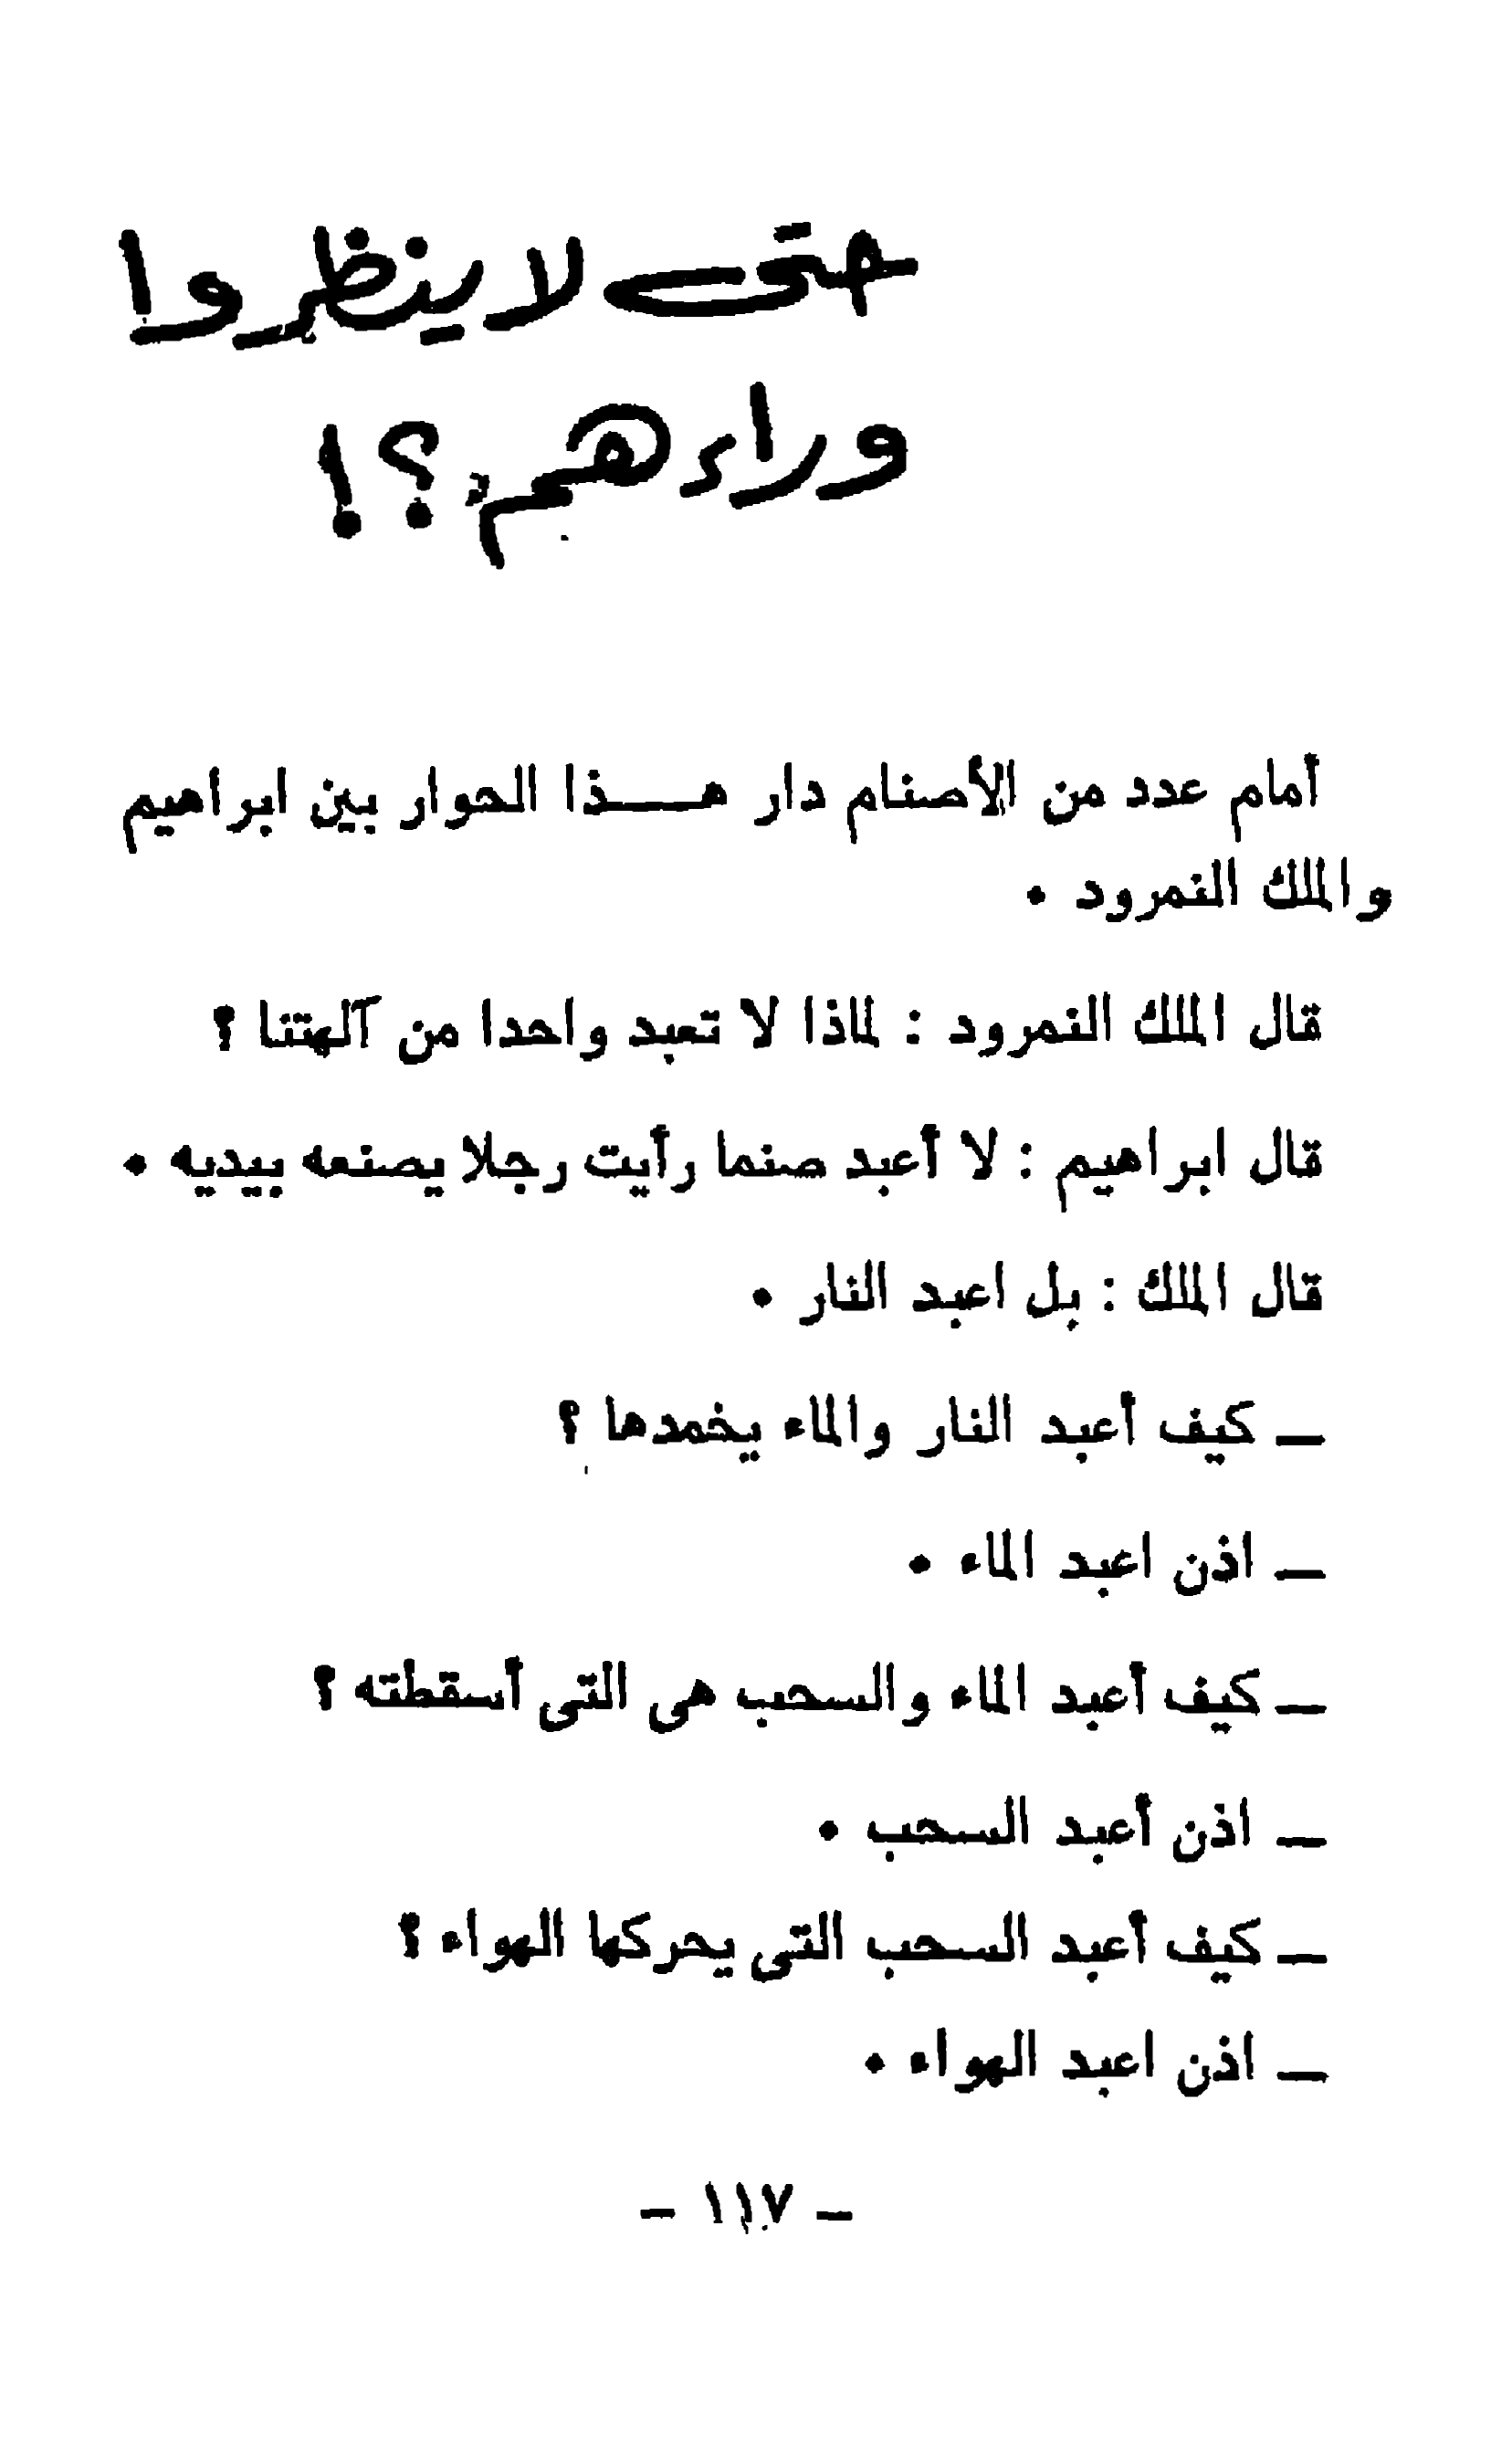 حتى لا ينظروا
وراءهم ؟!
أمام عدد من الأصنام دار هـــذا الحوار بين ابراهيم
والملك النمرود .
قال الملك النمرود : لماذا لا تعبد واحدا من آلهتنا ؟
قال ابراهيم : لا أعبد صنما رأيت رجلا يصنعه بيديه .
قال الملك : بل اعبد النار .
ـ كيف أعبد النار والماء يخمدها ؟
ـ اذن اعبد الماء .
ـ كيف أعبد الماء والسحب هى التى أسقطته ؟
ـ اذن أعبد السحب .
ـ كيف أعبد السحب التى يحركها الهواء ؟
ـ اذن اعبد الهواء .
- ١١٧ -